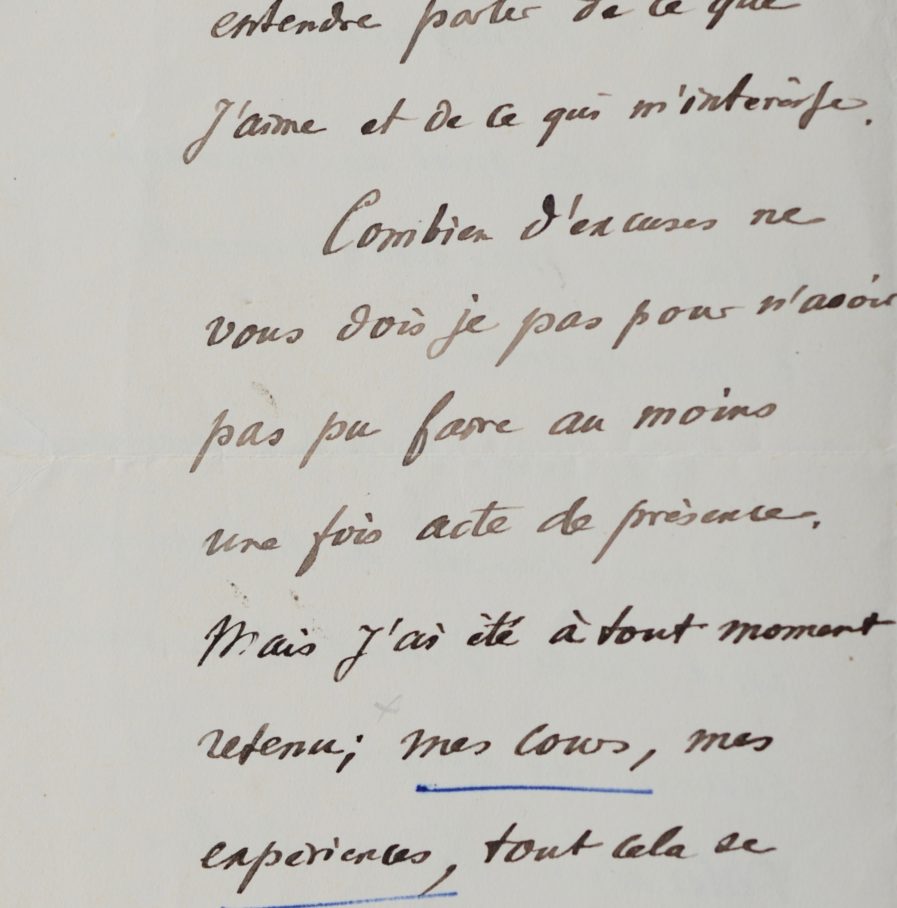 entendre parler de ce que
J'aime et de ce qui m'intéresse.
Combien d'excuses ne
vous dois je pas pour n'avoir
pas pu faire au moins
une fois acte de présence.
Mais J'ai été à tout moment
retenu; mes cours, mes
expériences, tout cela se